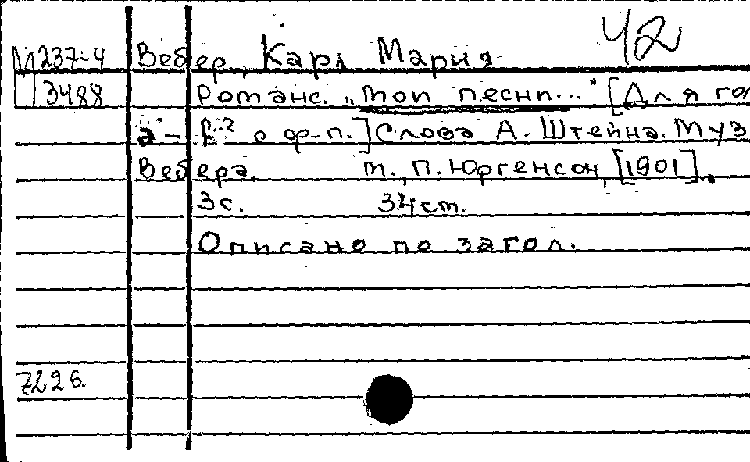 42
М237-4 Вебер, Карл Мария
3488 Романс. „Мои песни..." [Для го
a² – с ф-п.] Слова А. Штейна. Муз
Вебера. М., П. Юргенсон, [1901].
3с. 34см.
Описано по загол.
7226.